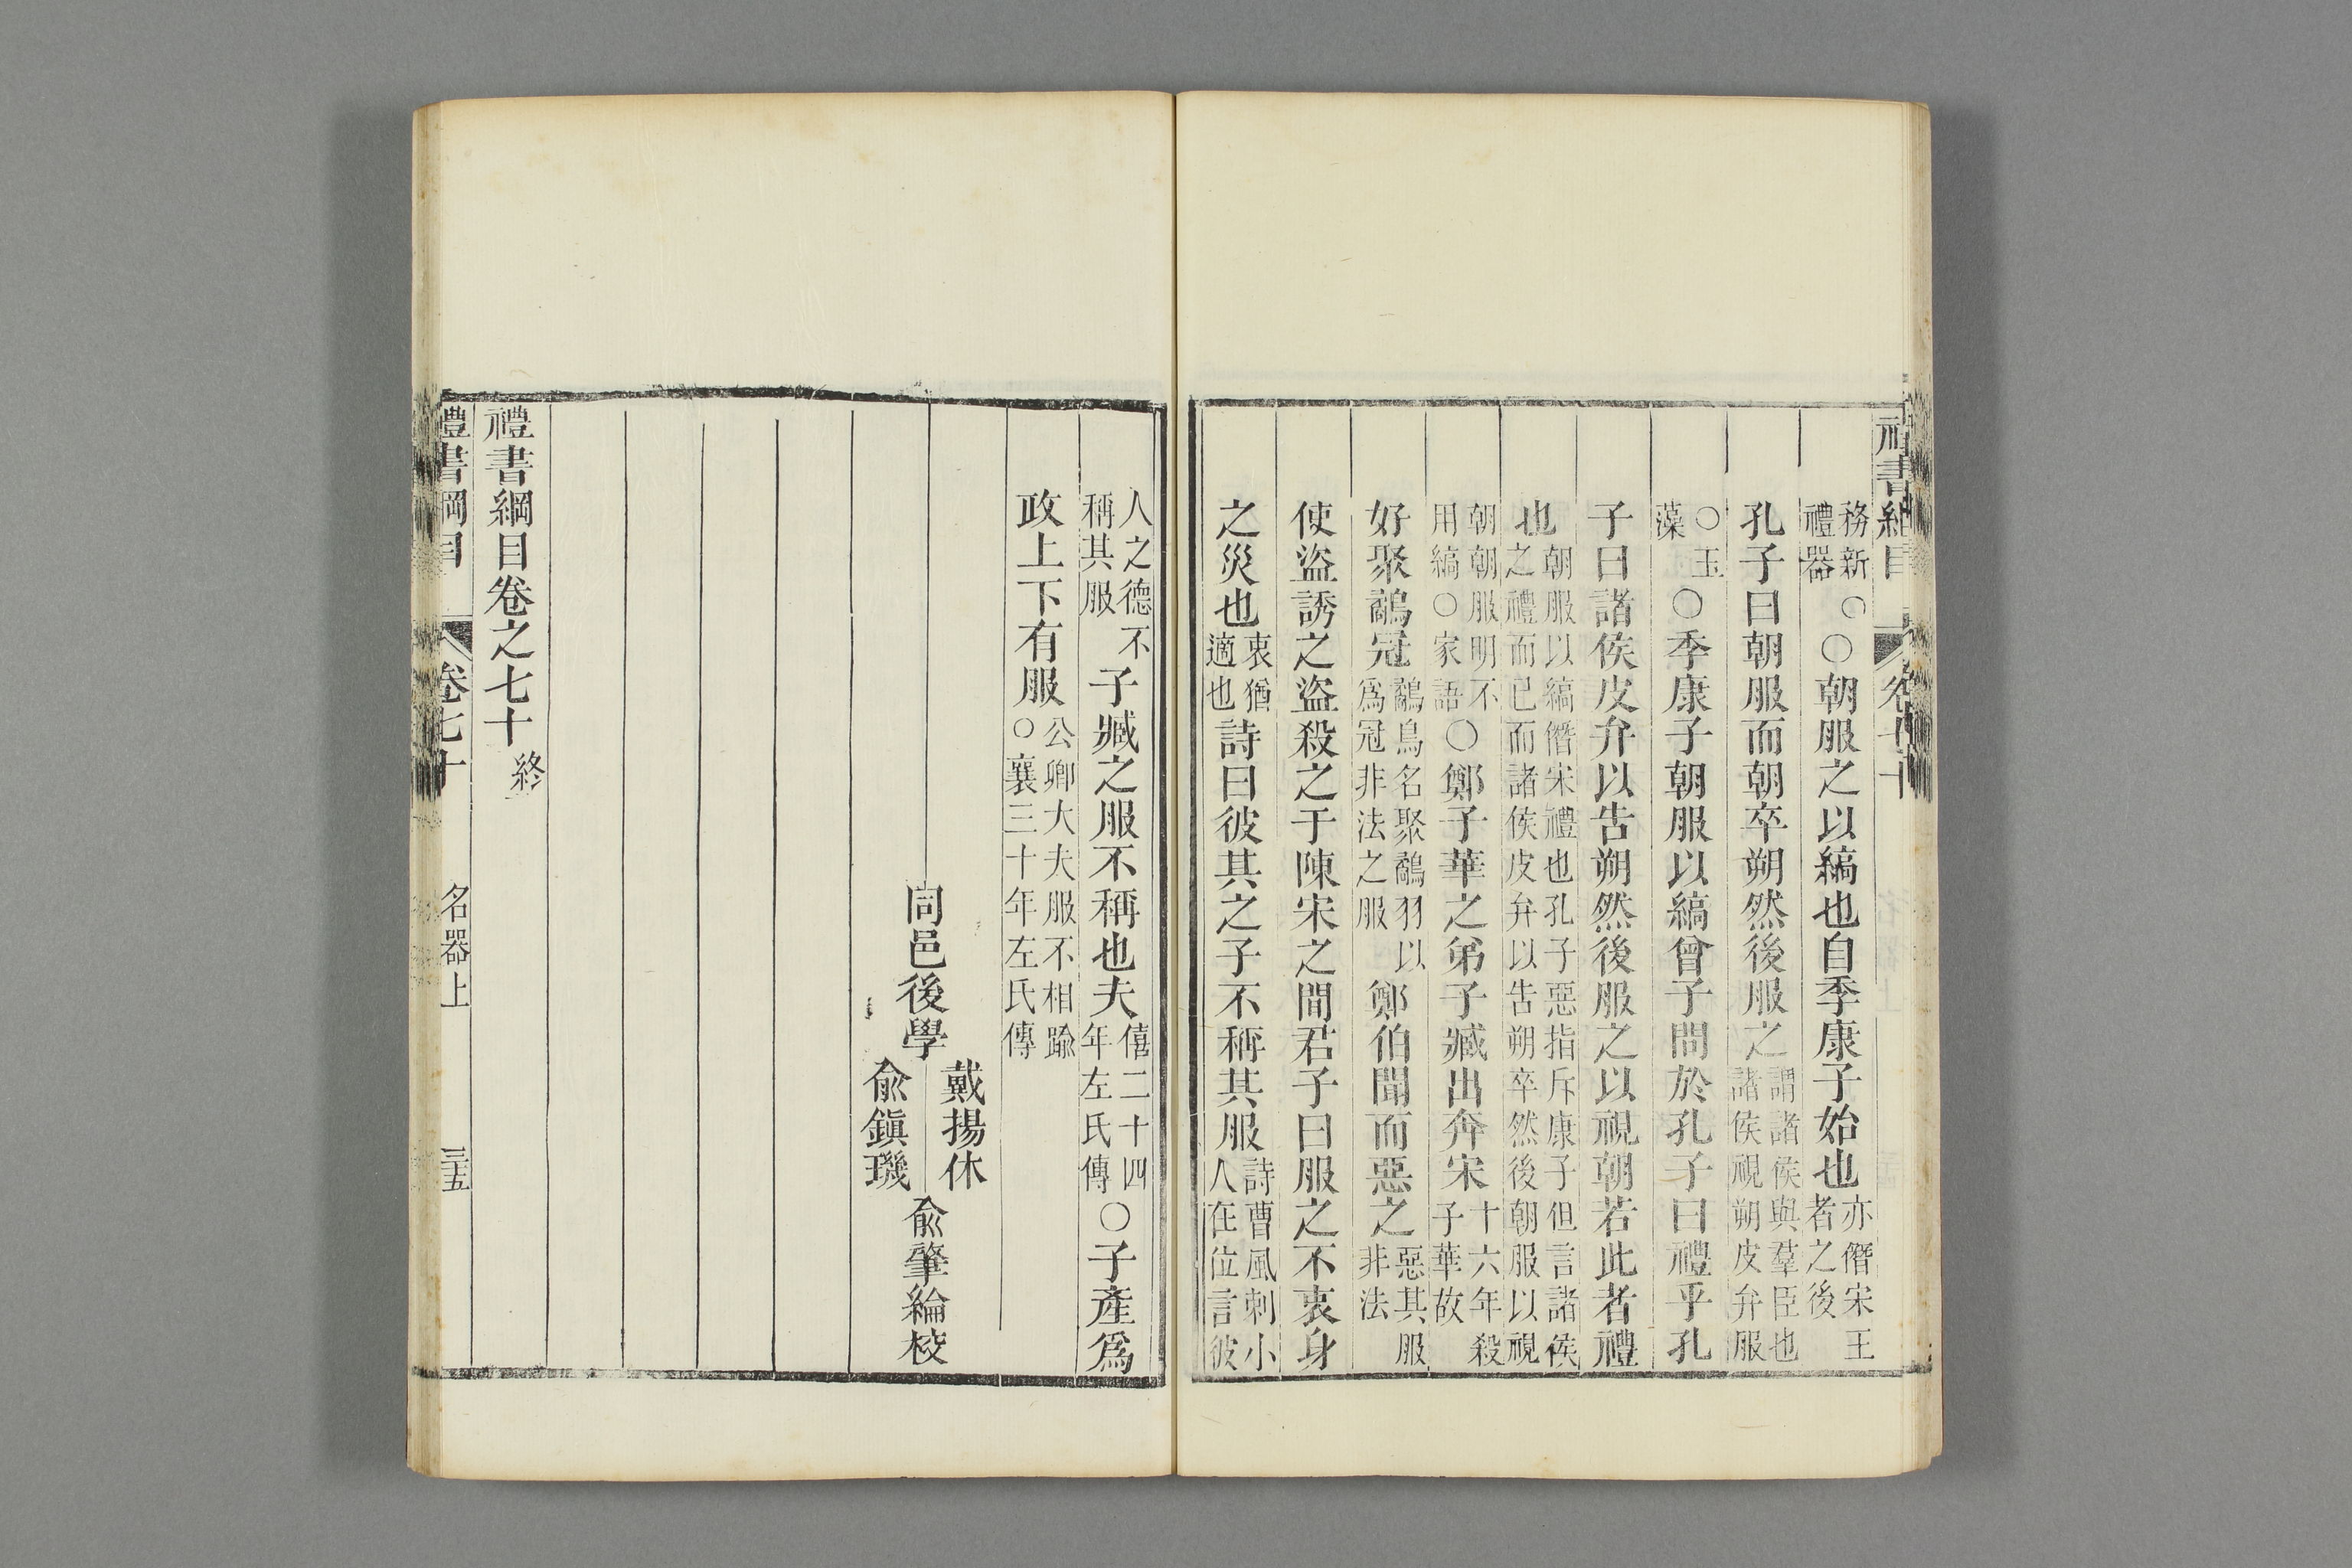 禮書綱目 卷七十
務新○禮器○朝服之以縞也自季康子始也亦僭宋王者之後
孔子曰朝服而朝卒朔然後服之謂諸侯與羣臣也諸侯視朔皮弁服
○玉藻○季康子朝服以縞曾子問於孔子曰禮乎孔
子曰諸侯皮弁以告朔然後服之以視朝若此者禮
也朝服以縞僭宋禮也孔子惡指斥康子但言諸侯之禮而已而諸侯皮弁以告朔卒然後朝服以視
朝朝服明不用縞○家語○鄭子華之弟子臧出奔宋十六年殺子華故
好聚鷸冠鷸鳥名聚鷸羽以爲冠非法之服鄭伯聞而惡之惡其服非法
使盜誘之盜殺之于陳宋之間君子曰服之不衷身
之災也衷猶適也詩曰彼其之子不稱其服詩曹風刺小人在位言彼
人之德不稱其服子臧之服不稱也夫僖二十四年左氏傳○子產爲
政上下有服公卿大夫服不相踰○襄三十年左氏傳
同邑後學戴揚休俞鎮璣俞肇綸校
禮書綱目卷之七十終
禮書綱目 卷七十 名器上 三五